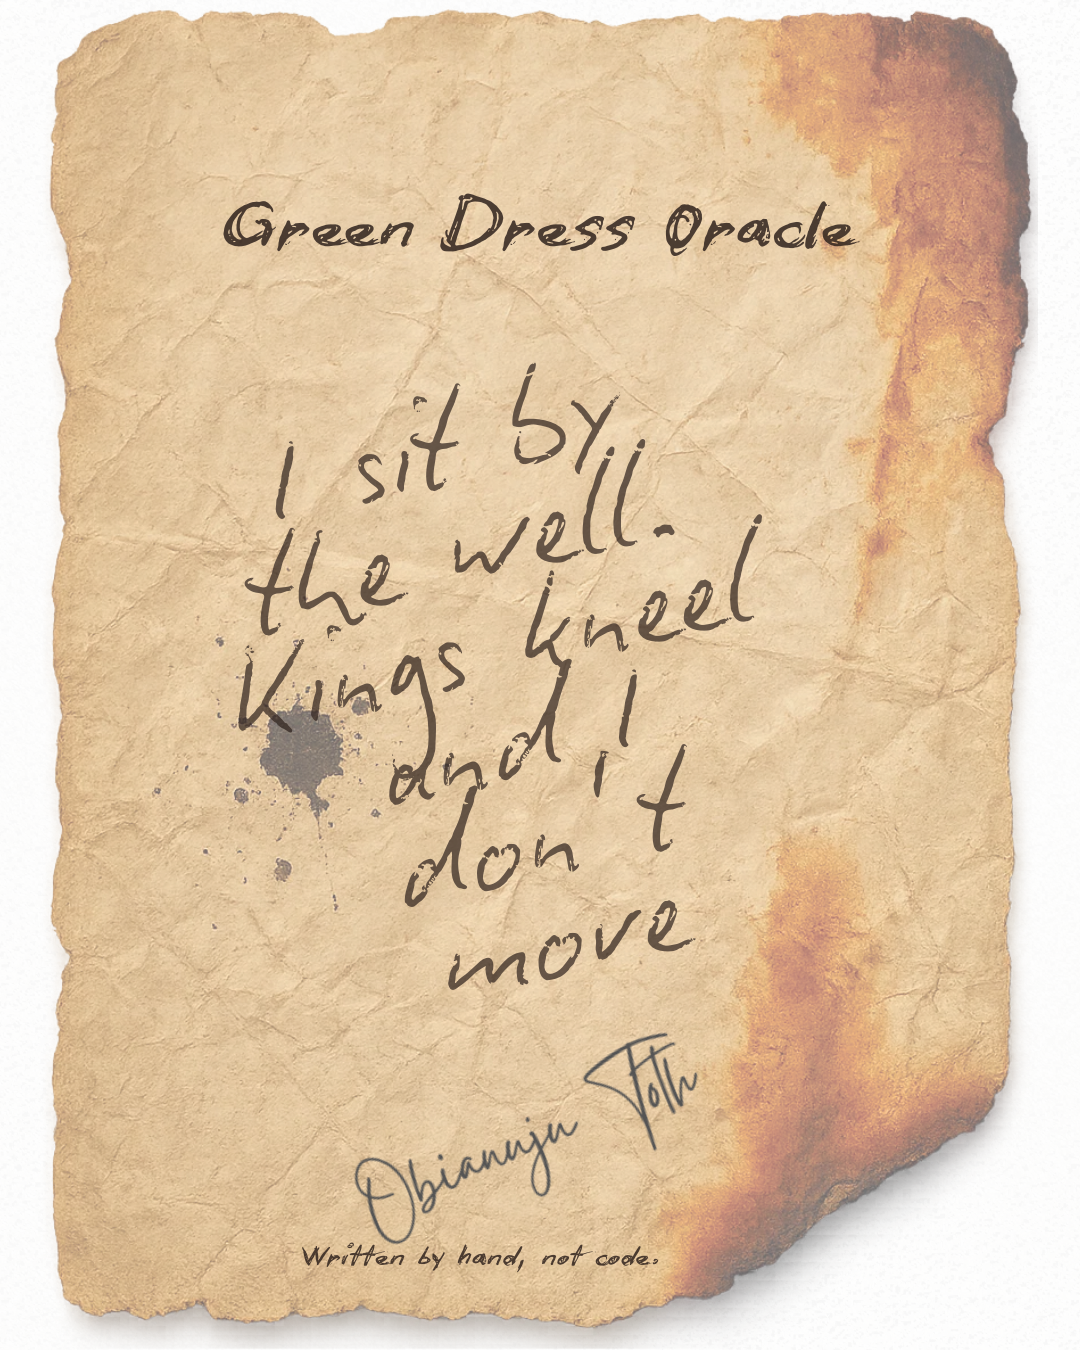 Green Dress Oracle
I sit by
the well.
Kings kneel
and I
don't
move
Obianuju Toth
Written by hand, not code.